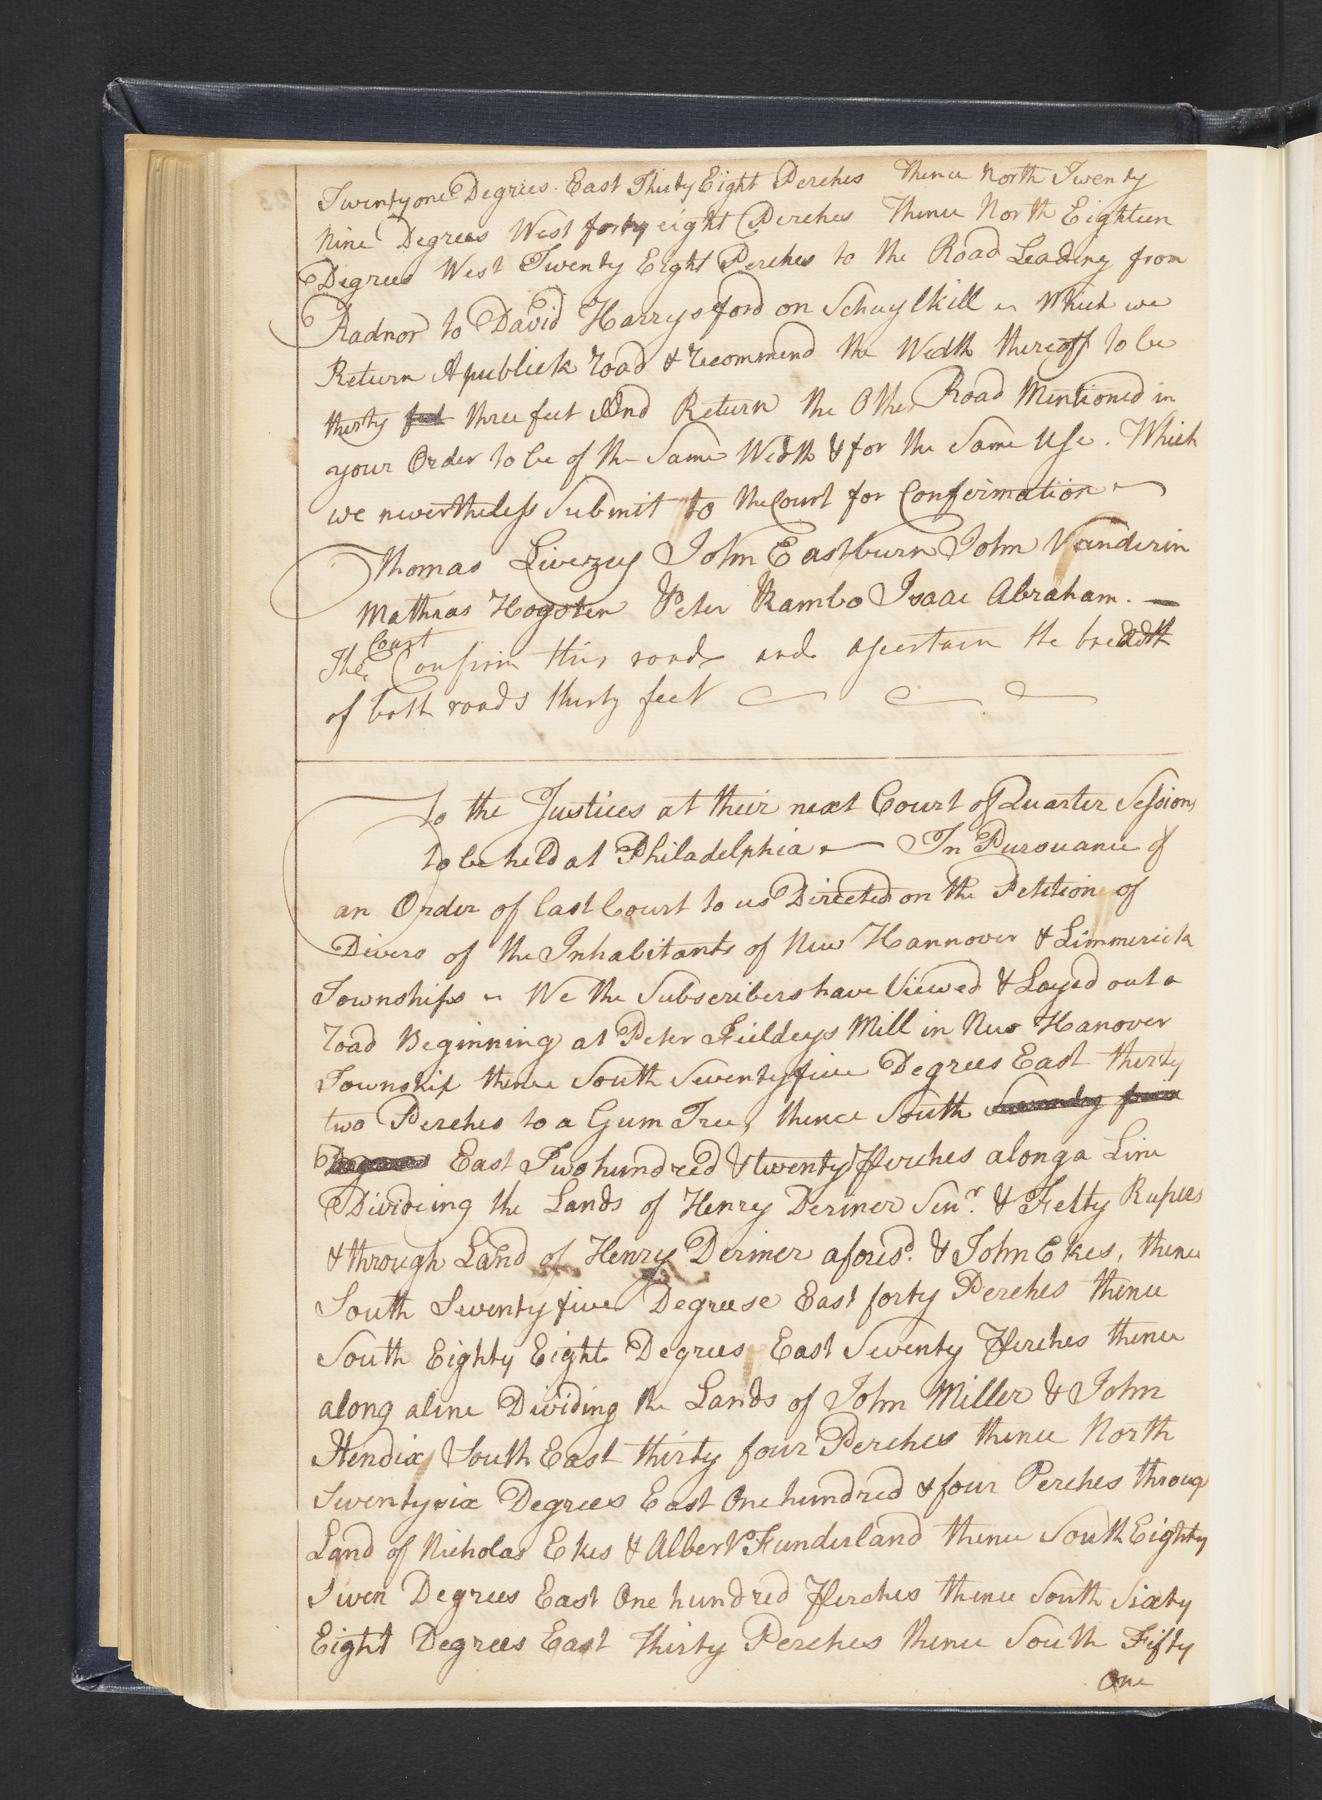 Twenty one Degrees East Thirty Eight Perches thence North Twenty
Nine Degrees West forty eight Perches Thence North Eighteen
Degrees West Twenty Eight Perches to the Road Leading from
Radnor to David Harrys ford on Schuylkill Which we
Return A publick road & recommend the Width thereoff to be
thirty feet three feet And Return the Other Road Mentioned in
your Order to be of the Same Width & for the Same Use. Which
we nevertheless Submit to the Court for Confirmation
Thomas Livezey John Eastburn John Vanderin
Mathias Hogsten Peter Rambo Isaac Abraham. —
The Court Confirm this road and assertain the breadth
of both roads thirty feet
To the Justices at their next Court of Quarter Sessions
to be held at Philadelphia — In Pursuance of
an Order of last Court to us Directed on the Petition of
Divers of the Inhabitants of New Hannover & Limmerick
Townships We the Subscribers have Viewed & Layed out a
road Beginning at Peter Fieldeys Mill in New Hanover
Township thence South Seventy five Degrees East thirty
two Perches to a Gum Tree, thence South Seventy five
Degrees East Two hundred & twenty Perches along a Line
Divideing the Lands of Henry Deriner Senr. & Felty Rupers
& through Land of Henry Deriner aforesd. & John Ekes, thence
South Seventy five Degreese East forty Perches thence
South Eighty Eight Degrees East Seventy Perches thence
along a line Dividing the Lands of John Miller & John
Hendix South East thirty four Perches thence North
Seventy six Degrees East One hundred & four Perches throug
Land of Nicholas Ekes & Albert Funderland thence South Eighty
Seven Degrees East One hundred Perches thence South Sixty
Eight Degrees East Thirty Perches thence South Fifty
One